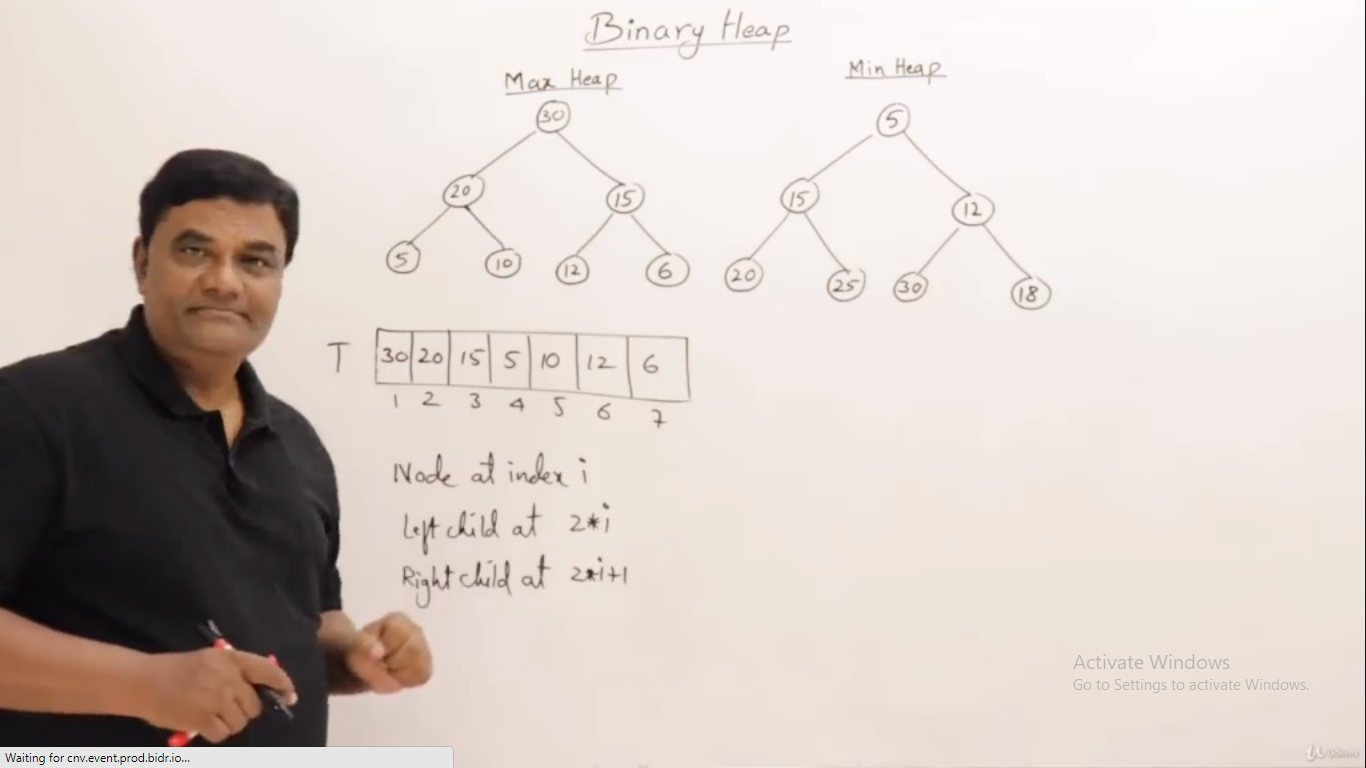 Binary Heap
Max Heap
Min Heap
30
5
20
15
15
12
5
10
12
6
20
25
30
18
T 30 20 15 5 10 12 6
1 2 3 4 5 6 7
Node at index i
Left child at 2*i
Right child at 2*i+1
Activate Windows
Go to Settings to activate Windows.
Waiting for cnv.event.prod.bidr.io...
Udemy